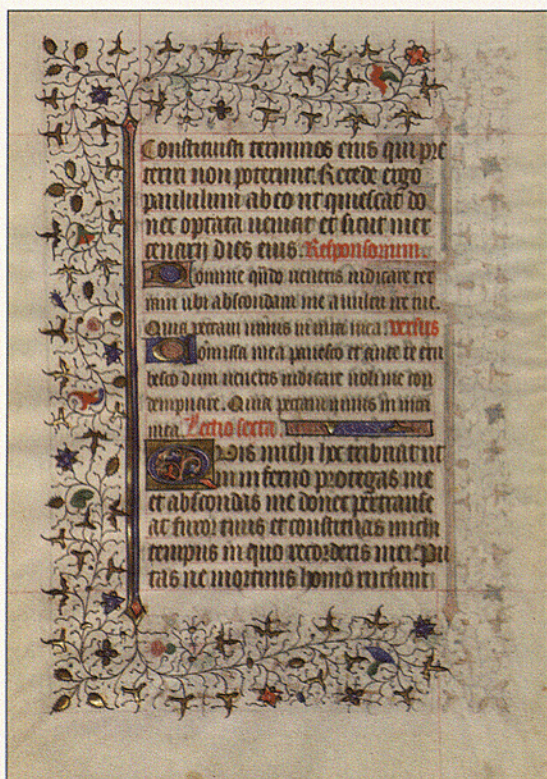 Constituisti terminos eius qui pre
teriri non poterunt. Recede ergo
paululum ab eo ut quiescat do
nec optata veniat et sicut mer
cenarij dies eius. Responsorium.
Domine qndo veneris iudicare ter
ram ubi abscondam me a vultu ire tue.
Quia peccavi nimis in vita mea. versus
Comissa mea pavesco et ante te eru
besco dum veneris iudicare noli me con
dempnare. Quia peccavi nimis in vita
mea. Lectio sexta.
Quis michi hoc tribuat ut
in inferno protegas me
et abscondas me donec pertranse
at furor tuus et constituas michi
tempus in quo recorderis mei. Pu
tas ne mortuus homo rursum